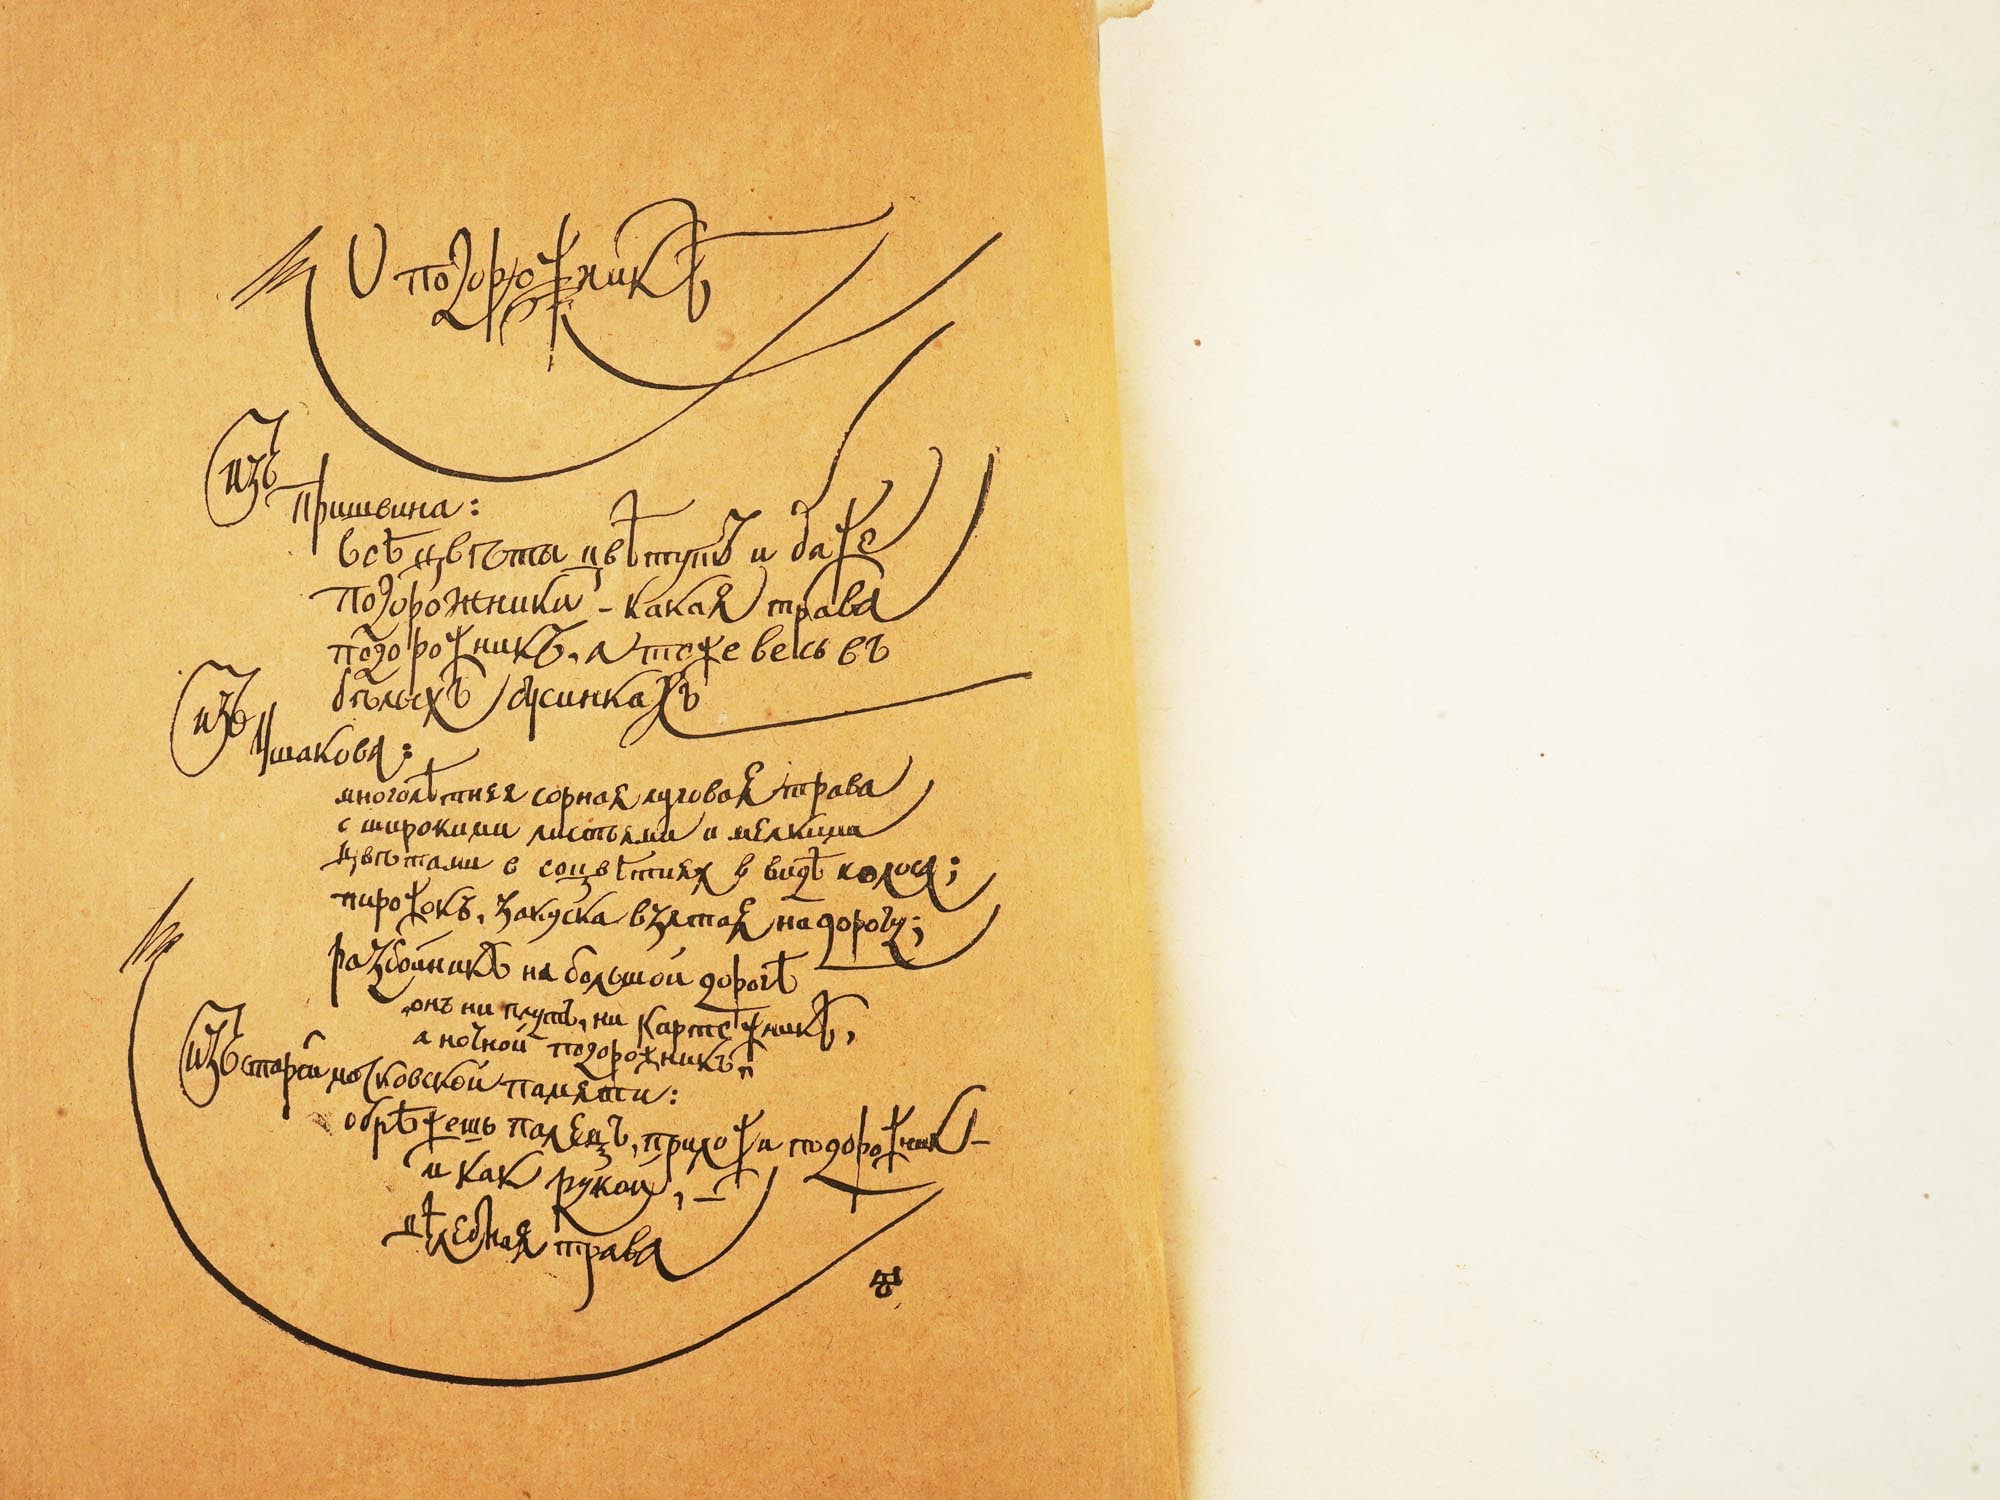 О подорожникѣ
изъ
Пришвина:
всѣ цвѣты цвѣтутъ и даже
подорожники – какая трава
подорожникъ, а тоже весь въ
бѣлыхъ бусинкахъ
изъ
Ушакова:
многолѣтняя сорная луговая трава
с широкими листьями и мелкими
цвѣтами в соцвѣтиях в видѣ колоса;
пирожокъ, закуска взятая на дорогу;
разбойникъ на большой дорогѣ
„онъ ни плутъ, ни картежникъ,
а ночной подорожникъ"
изъ старой московской памяти:
обрѣжешь палецъ, приложи подорожник –
и как рукой, –
цѣлебная трава